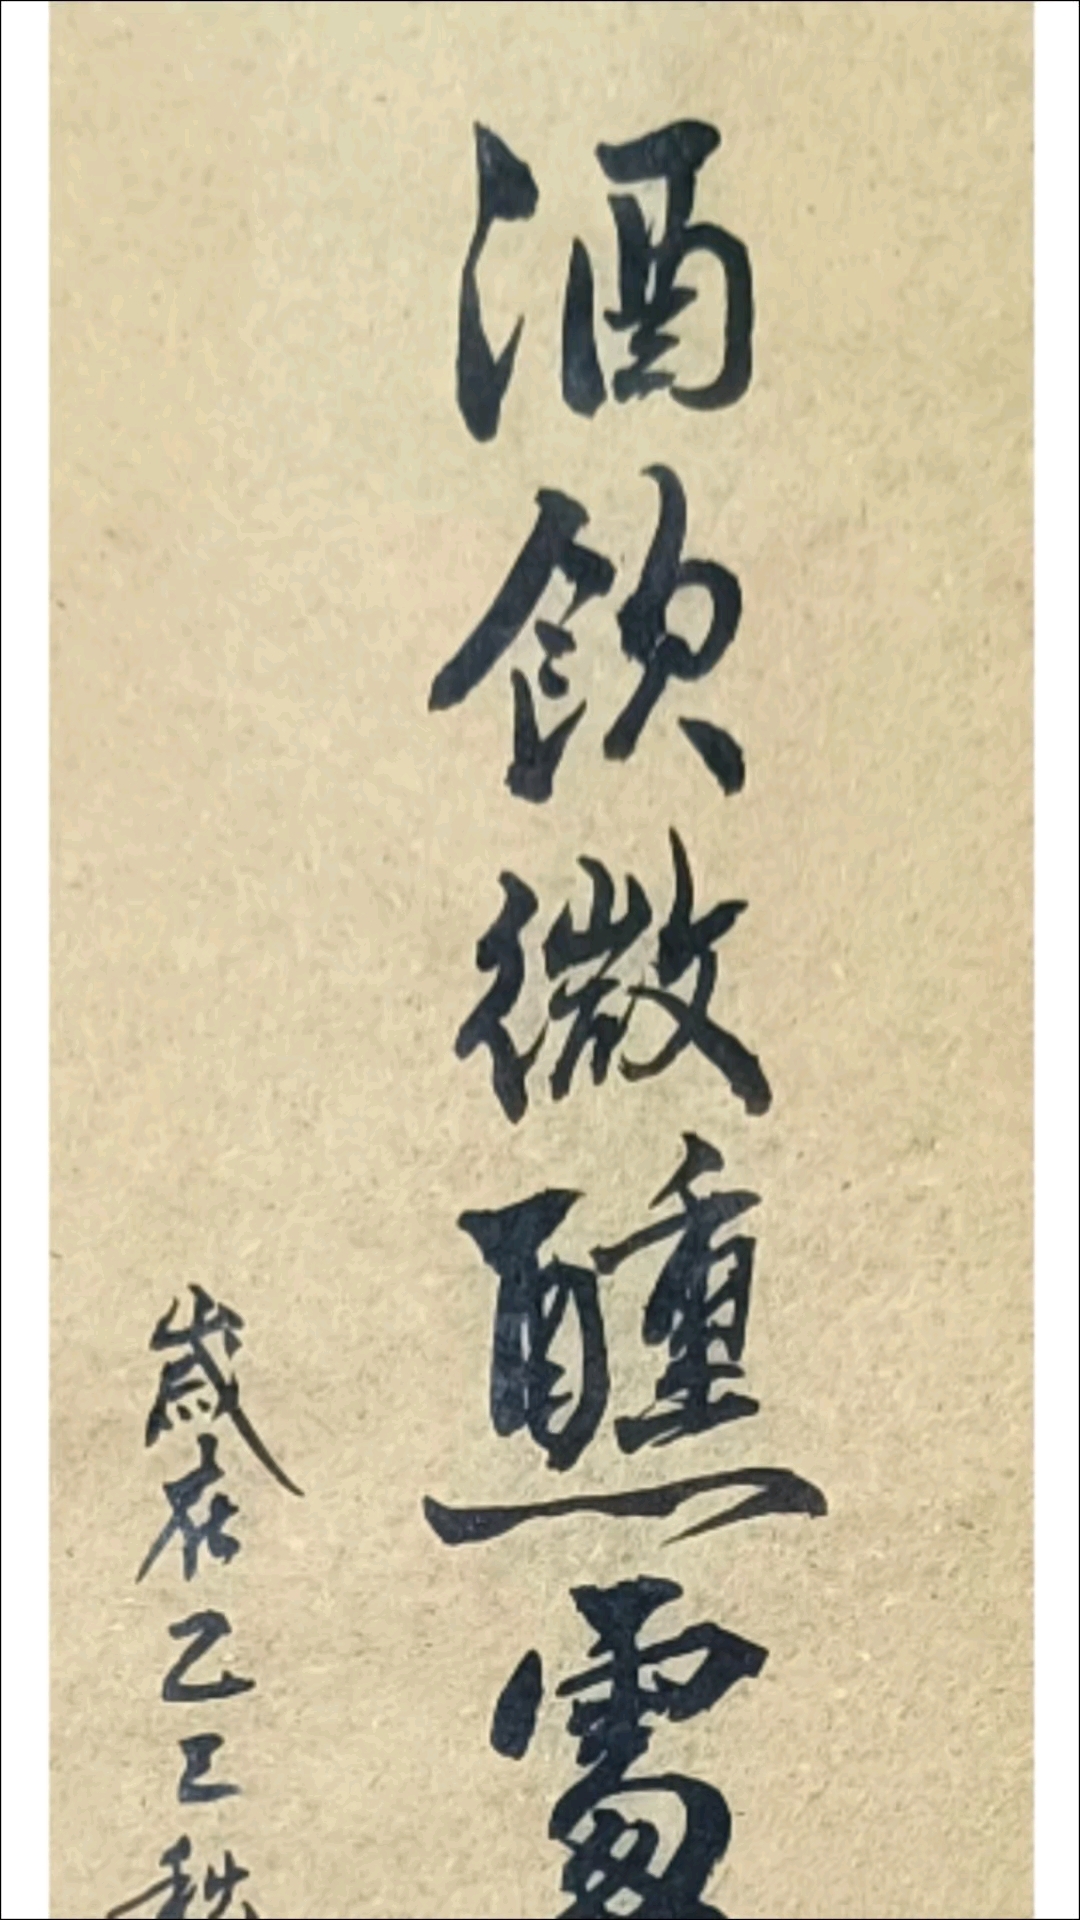 酒飲微醺
歲在乙巳秋